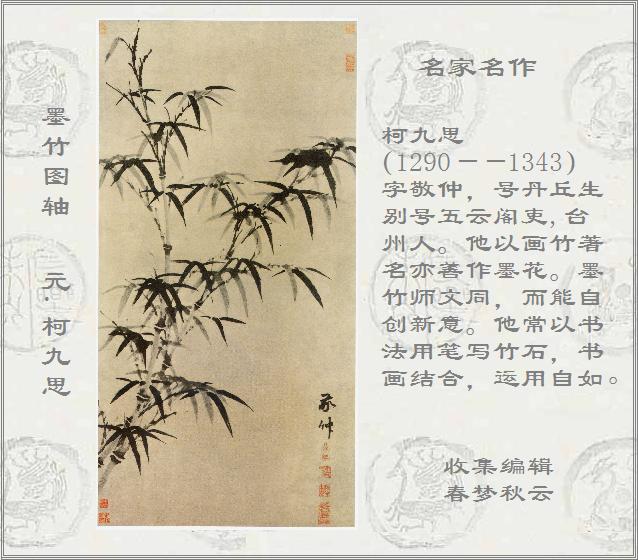 墨竹图轴 元·柯九思
敬仲
名家名作
柯九思
(1290－－1343)
字敬仲，号丹丘生
别号五云阁吏,台
州人。他以画竹著
名亦善作墨花。墨
竹师文同，而能自
创新意。他常以书
法用笔写竹石，书
画结合，运用自如。
收集编辑
春梦秋云